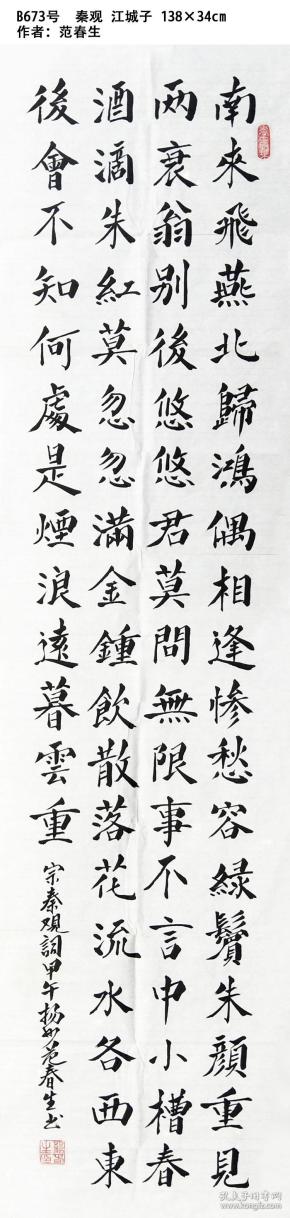 B673号 秦观 江城子 138×34cm
作者：范春生
南來飛燕北歸鴻偶相逢惨愁容緑鬢朱顔重見
两衰翁别後悠悠君莫問無限事不言中小槽春
酒滴朱紅莫忽忽滿金鍾飲散落花流水各西東
後會不知何處是煙浪遠暮雲重
宋秦观詞甲午扬州范春生书
孔夫子旧书网